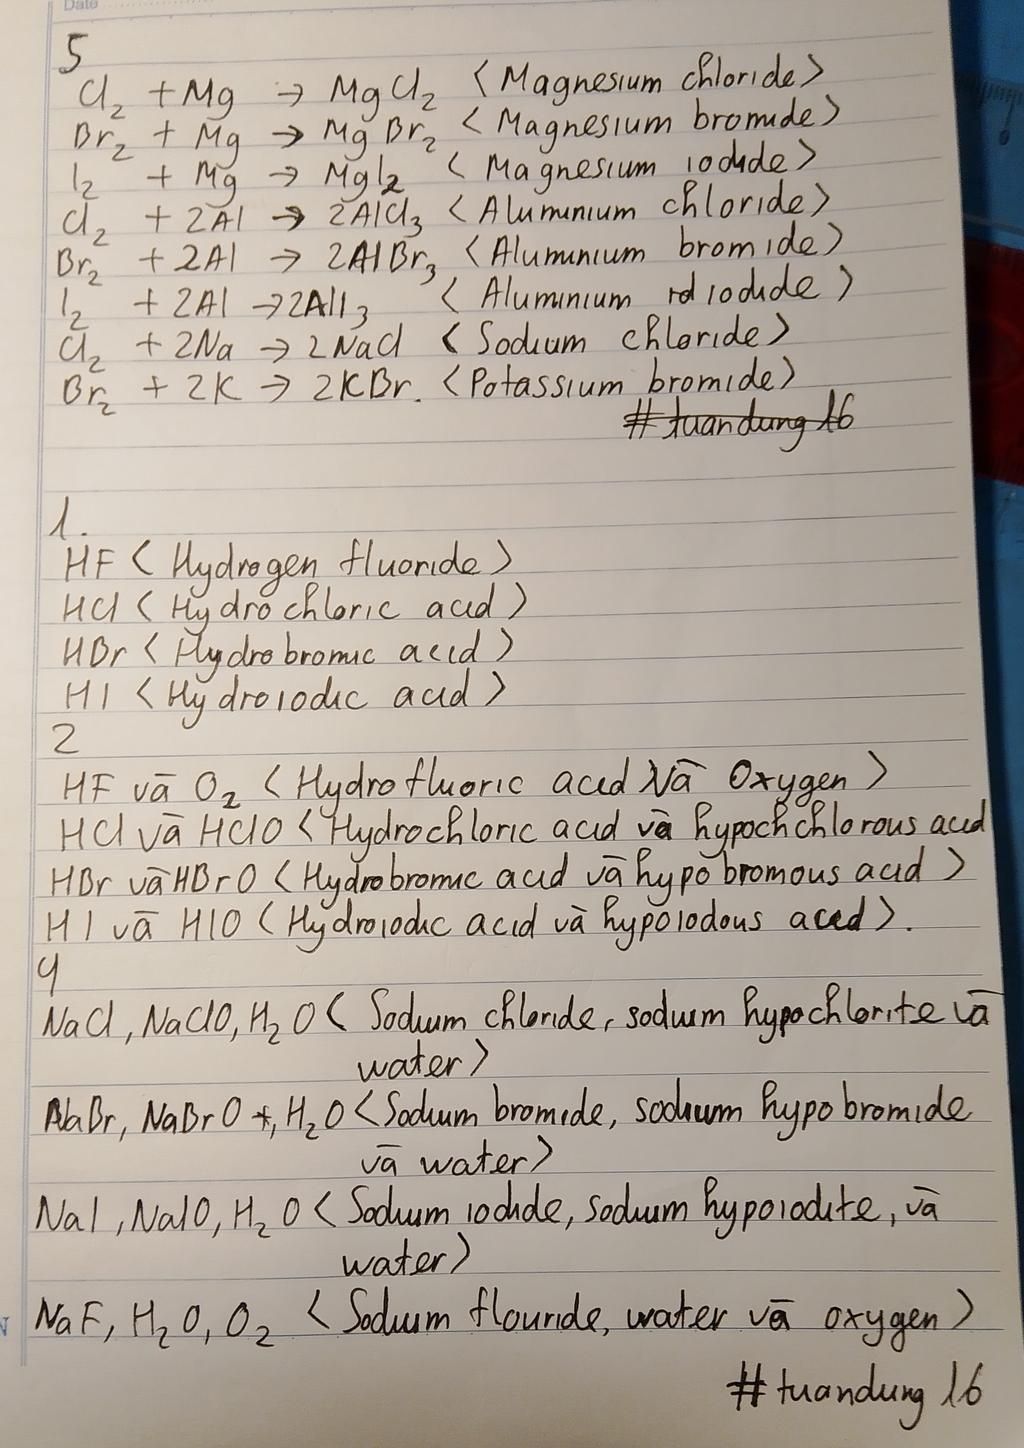 Date
5
Cl₂ + Mg → MgCl₂ <Magnesium chloride>
Br₂ + Mg → MgBr₂ <Magnesium bromide>
I₂ + Mg → MgI₂ <Magnesium iodide>
Cl₂ + 2Al → 2AlCl₃ <Aluminium chloride>
Br₂ + 2Al → 2AlBr₃ <Aluminium bromide>
I₂ + 2Al → 2AlI₃ <Aluminium iodide>
Cl₂ + 2Na → 2NaCl <Sodium chloride>
Br₂ + 2K → 2KBr. <Potassium bromide>
#tuandung16
1.
HF <Hydrogen fluoride>
HCl <Hydrochloric acid>
HBr <Hydrobromic acid>
HI <Hydroiodic acid>
2
HF và O₂ <Hydrofluoric acid và Oxygen>
HCl và HClO <Hydrochloric acid và hypochchlorous acid
HBr và HBrO <Hydrobromic acid và hypobromous acid>
HI và HIO <Hydroiodic acid và hypoiodous acid>.
4
NaCl, NaClO, H₂O <Sodium chloride, sodium hypochlorite và
water>
NaBr, NaBrO, H₂O <Sodium bromide, sodium hypobromide
và water>
NaI, NaIO, H₂O <Sodium iodide, sodium hypoiodite, và
water>
NaF, H₂O, O₂ <Sodium flouride, water và oxygen>
#tuandung16